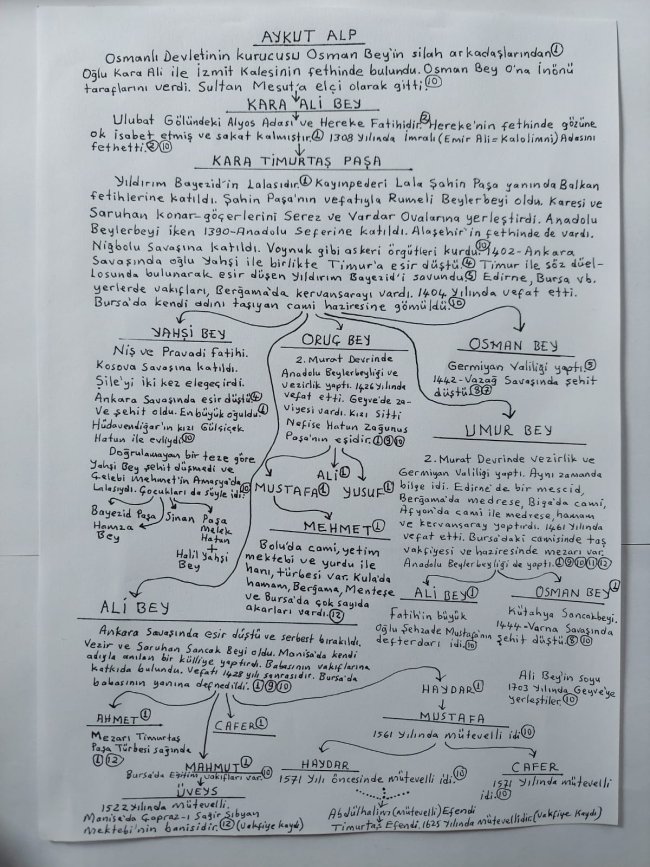 AYKUT ALP
Osmanlı Devletinin kurucusu Osman Bey'in silah arkadaşlarından①
Oğlu Kara Ali ile İzmit Kalesinin fethinde bulundu. Osman Bey O'na İnönü
taraflarını verdi. Sultan Mesut'a elçi olarak gitti.⑩
KARA ALİ BEY
Ulubat Gölündeki Alyos Adası ve Hereke Fatihidir.② Hereke'nin fethinde gözüne
ok isabet etmiş ve sakat kalmıştır.① 1308 yılında İmralı (Emir Ali=Kalolimni) Adasını
fethetti.②⑩
KARA TİMURTAŞ PAŞA
Yıldırım Bayezid'in Lalasıdır.① Kayınpederi Lala Şahin Paşa yanında Balkan
fetihlerine katıldı. Şahin Paşa'nın vefatıyla Rumeli Beylerbeyi oldu. Karesi ve
Saruhan konar-göçerlerini Serez ve Vardar Ovalarına yerleştirdi. Anadolu
Beylerbeyi iken 1390-Anadolu Seferine katıldı. Alaşehir'in fethinde de vardı.
Niğbolu Savaşına katıldı. Voynuk gibi askeri örgütleri kurdu.⑩ 1402-Ankara
Savaşında oğlu Yahşi ile birlikte Timur'a esir düştü.④ Timur ile söz düel-
losunda bulunarak esir düşen Yıldırım Bayezid'i savundu.⑤ Edirne, Bursa vb.
yerlerde vakıfları, Bergama'da kervansarayı vardı. 1404 yılında vefat etti.
Bursa'da kendi adını taşıyan cami haziresine gömüldü.⑩
YAHŞİ BEY
Niş ve Pravadi fatihi.
Kosova Savaşına katıldı.
Şile'yi iki kez ele geçirdi.
Ankara Savaşında esir düştü④
Ve şehit oldu. En büyük oğuldu.①
Hüdavendiğar'ın kızı Gülçiçek
Hatun ile evliydi.⑩
Doğrulamayan bir teze göre
Yahşi Bey şehit düşmedi ve
Çelebi Mehmet'in Amasya'da
Lalasıydı. Çocukları da şöyle idi.⑩
Bayezid Paşa
Hamza
Bey
Sinan
Paşa
Melek
Hatun
+
Halil Yahşi
Bey
ORUÇ BEY
2. Murat Devrinde
Anadolu Beylerbeyliği ve
vezirlik yaptı. 1426 yılında
vefat etti. Geyve'de za-
viyesi vardı. Kızı Sitti
Nefise Hatun Zağunus
Paşa'nın eşidir.①⑨⑩
MUSTAFA①
ALİ①
YUSUF①
MEHMET①
Bolu'da cami, yetim
mektebi ve yurdu ile
hanı, türbesi var. Kula'da
hamam, Bergama, Menteşe
ve Bursa'da çok sayıda
akarları vardı.⑫
OSMAN BEY
Germiyan Valiliği yaptı.⑤
1442-Vazağ Savaşında şehit
düştü.⑥⑦
UMUR BEY
2. Murat Devrinde vezirlik ve
Germiyan Valiliği yaptı. Aynı zamanda
bilge idi. Edirne'de bir mescid,
Bergama'da medrese, Biga'da cami,
Afyon'da cami ile medrese, hamam
ve kervansaray yaptırdı. 1461 yılında
vefat etti. Bursa'daki camisinde taş
vakfiyesi ve haziresinde mezarı var.
Anadolu Beylerbeyliği de yaptı.①⑨⑩⑪⑫
ALİ BEY①
Fatih'in büyük
Oğlu Şehzade Mustafa'nın
defterdarı idi.⑩
OSMAN BEY①
Kütahya Sancakbeyi.
1444-Varna Savaşında
şehit düştü.⑧⑩
ALİ BEY
Ankara Savaşında esir düştü ve serbest bırakıldı.
Vezir ve Saruhan Sancak Beyi oldu. Manisa'da kendi
adıyla anılan bir külliye yaptırdı. Babasının vakıflarına
katkıda bulundu. Vefatı 1428 yılı sonrasıdır. Bursa'da
babasının yanına defnedildi.①⑨⑩
Ali Bey'in soyu
1703 yılında Geyve'ye
yerleştiler.⑩
AHMET①
Mezarı Timurtaş
Paşa Türbesi sağında
①⑫
CAFER①
MAHMUT①
Bursa'da Eğitim vakıfları var.⑩
ÜVEYS
1522 yılında mütevelli.
Manisa'da Çapraz-ı Sağir Sıbyan
Mektebi'nin banisidir.⑫(Vakfiye Kaydı)
HAYDAR①
MUSTAFA
1561 yılında mütevelli idi.⑩
HAYDAR
1571 yılı öncesinde mütevelli idi.⑩
CAFER
1571 yılında mütevelli
idi.⑩
Abdülhalim (Mütevelli) Efendi
Timurtaş Efendi. 1625 yılında mütevellidir. (Vakfiye Kaydı)